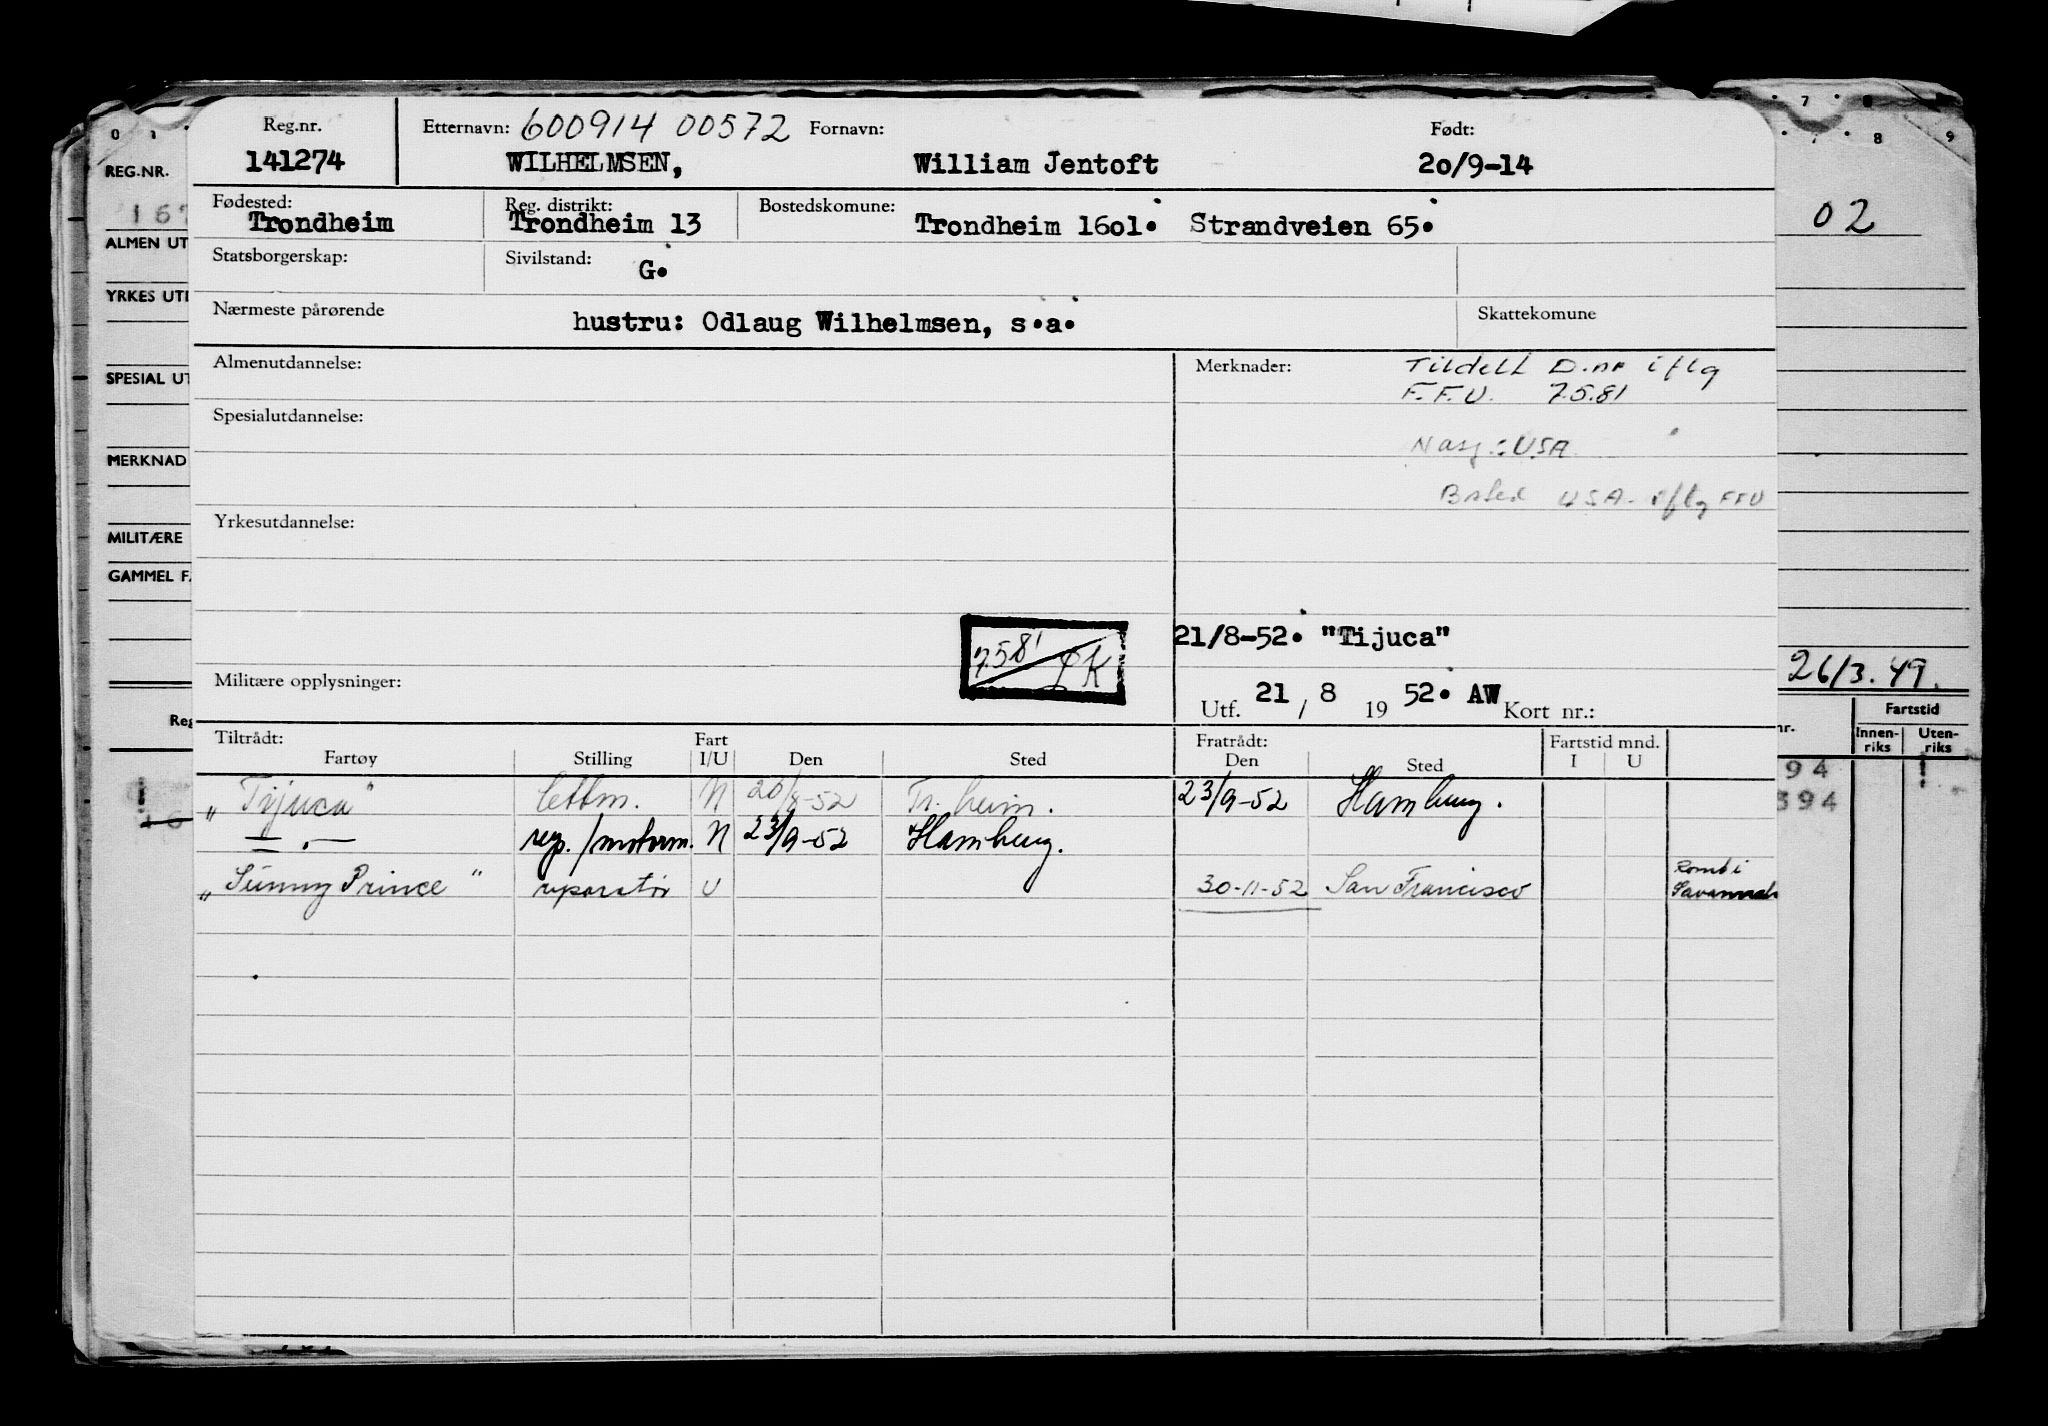 Reg.nr. Etternavn: 600914 00572 Fornavn: Født:
141274 WILHELMSEN, William Jentoft 2o/9-14
Fødested: Reg. distrikt: Bostedskomune:
Trondheim Trondheim 13 Trondheim 16o1. Strandveien 65.
Statsborgerskap: Sivilstand: G.
Nærmeste pårørende hustru: Odlaug Wilhelmsen, s.a. Skattekomune
Almenutdannelse: Merknader: Tildelt D.nr iflg
F.F.U. 7.5.81
Spesialutdannelse:
Nasj.: USA
Bosted USA. iflg FFU
Yrkesutdannelse:
21/8-52. "Tijuca"
7581 ØK
Militære opplysninger:
Utf. 21 / 8 19 52. AW Kort nr.:
Tiltrådt: Fart Fratrådt: Fartstid mnd.
Fartøy Stilling I/U Den Sted Den Sted I U
"Tijuca" lettm. N 20/8-52 Tr.heim. 23/9-52 Hamburg.
— " — rep./motorm. N 23/9-52 Hamburg.
"Sunny Prince" reparatør U 30-11-52 San Francisco Rømt i
Savannah
0 1
REG.NR.
167
ALMEN UT
YRKES UTD
SPESIAL UT
MERKNAD
MILITÆRE
GAMMEL F.
Reg
7 8
8 9
02
26/3.49.
Fartstid
nr. Innen-riks Uten-riks
94
394